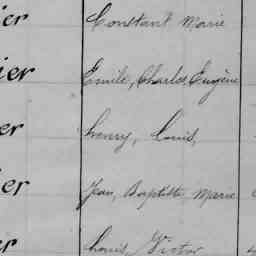 ier Constant Marie
ier Emile, Charles, Eugène
er henry, Louis,
ier Jean, Baptiste Marie
er Louis, Victor